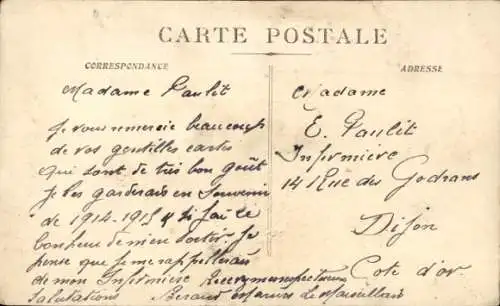 CARTE POSTALE
CORRESPONDANCE
Madame Paulit
Je vous remercie beaucoup
de vos gentilles cartes
qui sont de très bon goût
Je les garderais en Souvenir
de 1914-1915 & si j'ai le
bonheur de m'en sortir Je
pense que je me rappellerais
de mon Infirmière Recevez mes
Salutations
ADRESSE
Madame
E. Paulit
Infirmière
14 Rue des Godrans
Dijon
Cote d'or